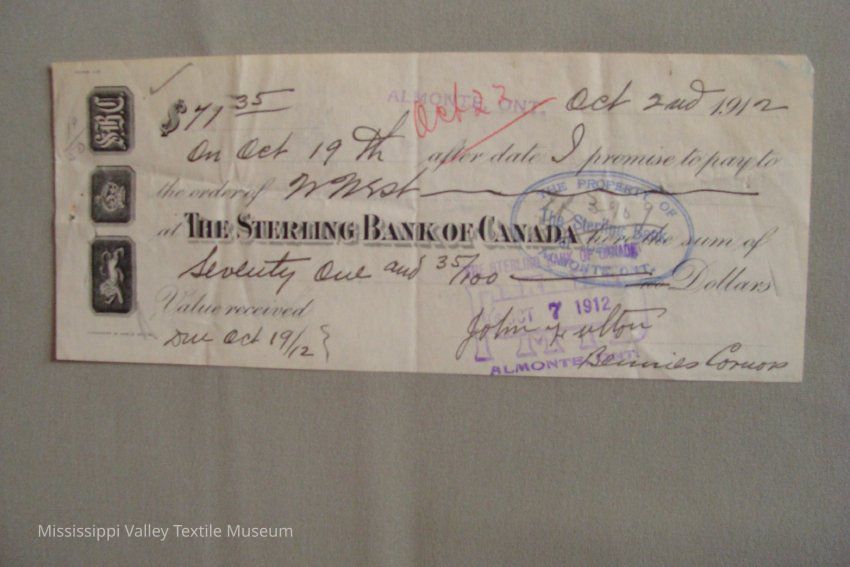 S.B.C.
$71 35
ALMONTE, ONT. Oct 2nd 1912
Oct 22
On Oct 19th after date I promise to pay to
the order of W West
at THE STERLING BANK OF CANADA for the sum of
Seventy One and 35/100 Dollars
Value received
Due Oct 19/12
John Fulton
Bennies Corners
THE PROPERTY OF
The Sterling Bank
ALMONTE, ONT.
THE STERLING BANK OF CANADA
OCT 7 1912
ALMONTE ONT.
Mississippi Valley Textile Museum